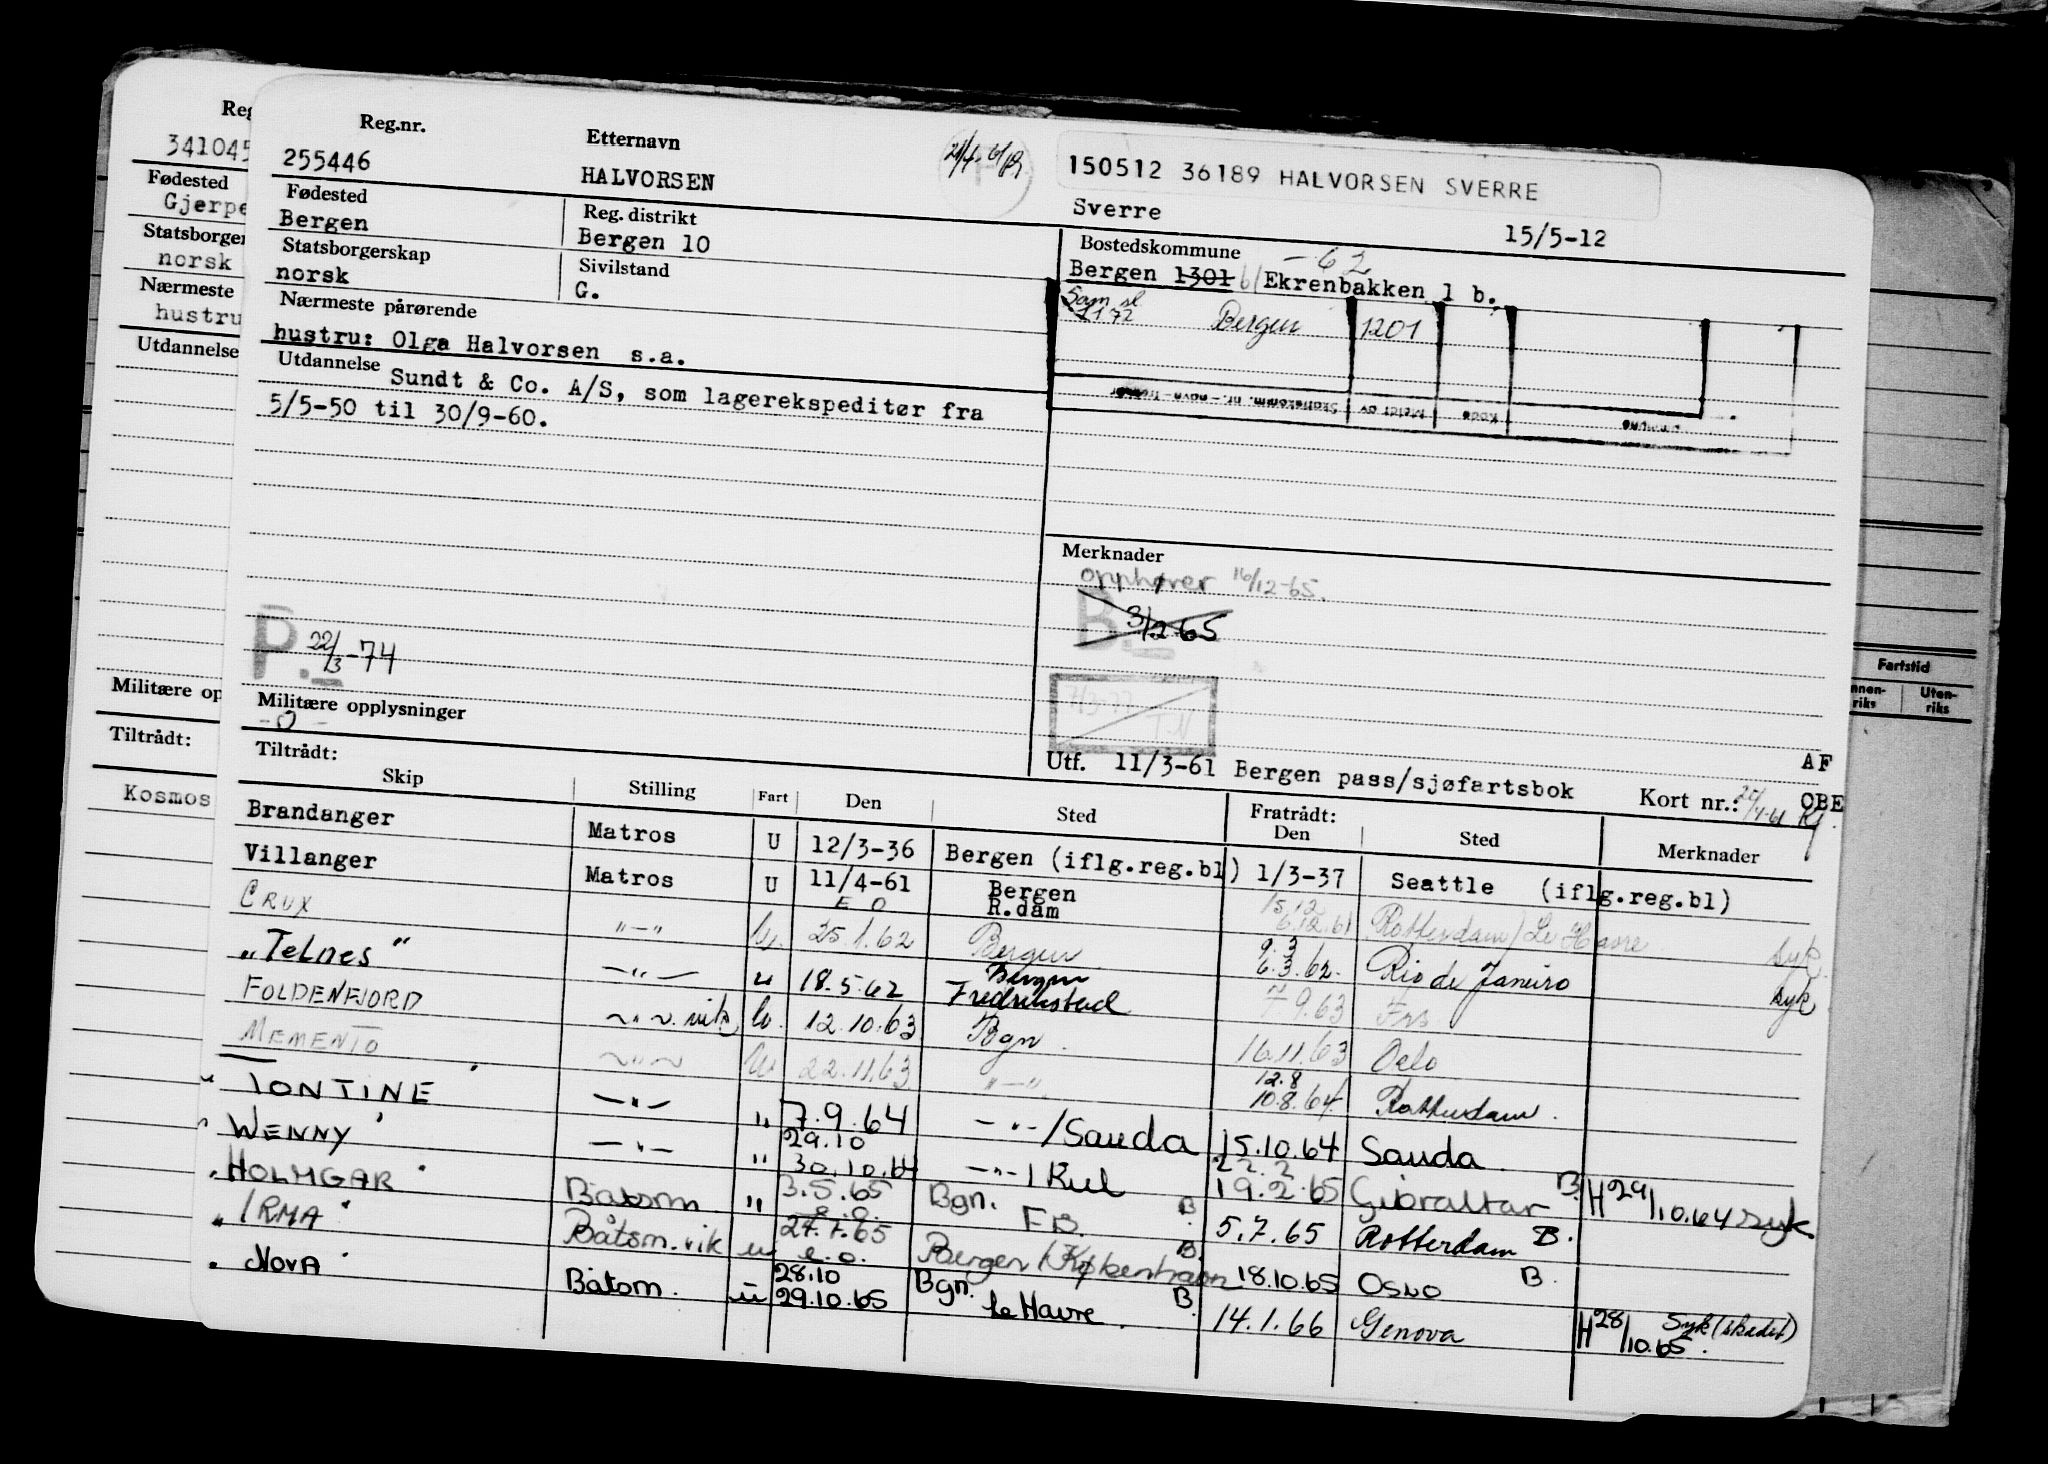 Reg.nr. Etternavn 21/4-61
255446 HALVORSEN 150512 36189 HALVORSEN SVERRE
Sverre 15/5-12
Fødested Reg. distrikt Bostedskommune
Bergen Bergen 10 Bergen 1301 Ekrenbakken 1 b.
-62
Statsborgerskap Sivilstand
norsk G.
Bergen 1201
Nærmeste pårørende
hustru: Olga Halvorsen s.a.
Skattekomm. nr. - navn - Meldt av Kode
Utdannelse Sundt & Co. A/S, som lagerekspeditør fra
5/5-50 til 30/9-60.
Merknader
opphører 16/12-65.
B. 3/12 65
P. 22/3-74
7/3-77 T.N
Militære opplysninger
-0-
Utf. 11/3-61 Bergen pass/sjøfartsbok AF
Kort nr.: OBE
Tiltrådt: Fratrådt:
Skip Stilling Fart Den Sted Den Sted Merknader
Brandanger Matros U 12/3-36 Bergen (iflg.reg.bl) 1/3-37 Seattle (iflg.reg.bl)
Villanger Matros U 11/4-61 E O Bergen R.dam 15.12 6.12.61 Rotterdam/Le Havre syk.
CRUX "-" U. 25.1.62 Bergen 9.3 6.3.62. Rio de Janeiro syk
"Telnes" -"- u 18.5.62 Bergen Fredrikstad 7.9.63 Frs
FOLDENFJORD ~"~ vik U. 12.10.63 Bgn. 16.11.63 Oslo
MEMENTO ~"~ U 22.11.63 "-" 12.8 10.8.64 Rotterdam.
"TONTINE" -"- " 7.9.64 -"-/Sauda 15.10.64 Sauda
"WENNY" -"- " 29.10 30.10.64 -"-/Kiel 22.2 19.2.65 Gibraltar B. H 29/10.64 syk
"HOLMGAR" Båtsm " 3.5.65 Bgn. B. 5.7.65 Rotterdam B.
"IRMA" Båtsm. vik u 27.7.65 e.o. Bergen/København B. 18.10.65 OSLO B.
"NOVA" Båtsm. u 28.10 29.10.65 Bgn. Le Havre. B. 14.1.66 Genova H 28/10.65. Syk (skadet)
341045
Fødested
Gjerpe
norsk
Nærmeste
hustru
Utdannelse
Militære op
Tiltrådt:
Kosmos
Fartstid
Uten-
riks